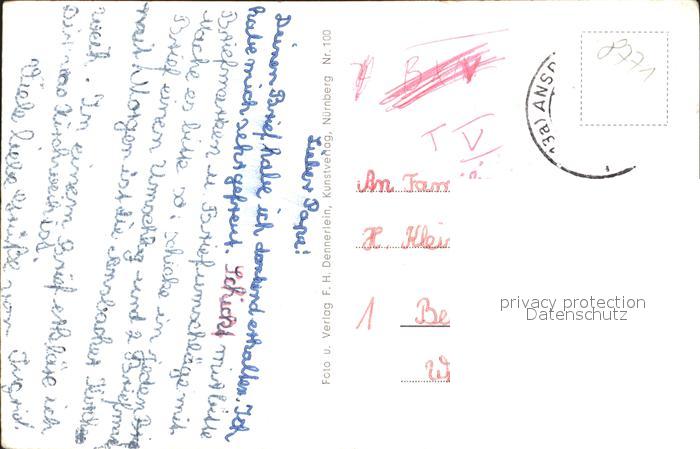 Lieber Papa!
Deinen Brief habe ich dankend erhalten. Ich
habe mich sehr gefreut. Schickt mir bitte
Briefmarken u. Briefumschläge mit
Mache es bitte so: schicke in jeden
Brief einen Umschlag und 2 Briefmar
mit! Morgen ist die Ansbacher Kirch
weih. In einem Brief erkläre ich
Dir was Kirchweih ist.
Viele liebe Grüße von Ingrid
Foto u. Verlag F. H. Dennerlein, Kunstverlag, Nürnberg Nr. 100
TV
An Fam
H. Klei
1 Be
W
13a) ANSB
privacy protection
Datenschutz